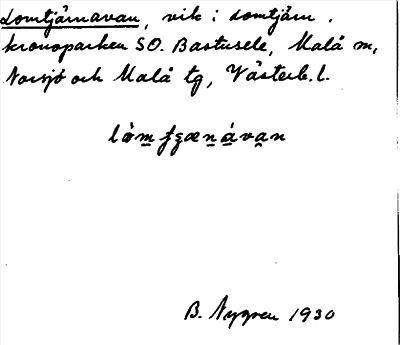 Lomtjärnavan, vik i Lomtjärn.
kronoparken SO. Bastusele, Malå m,
Norsjö och Malå tg, Västerb. l.
lòm̲ fçæn̲á̲va̲n
B. Nygren 1930